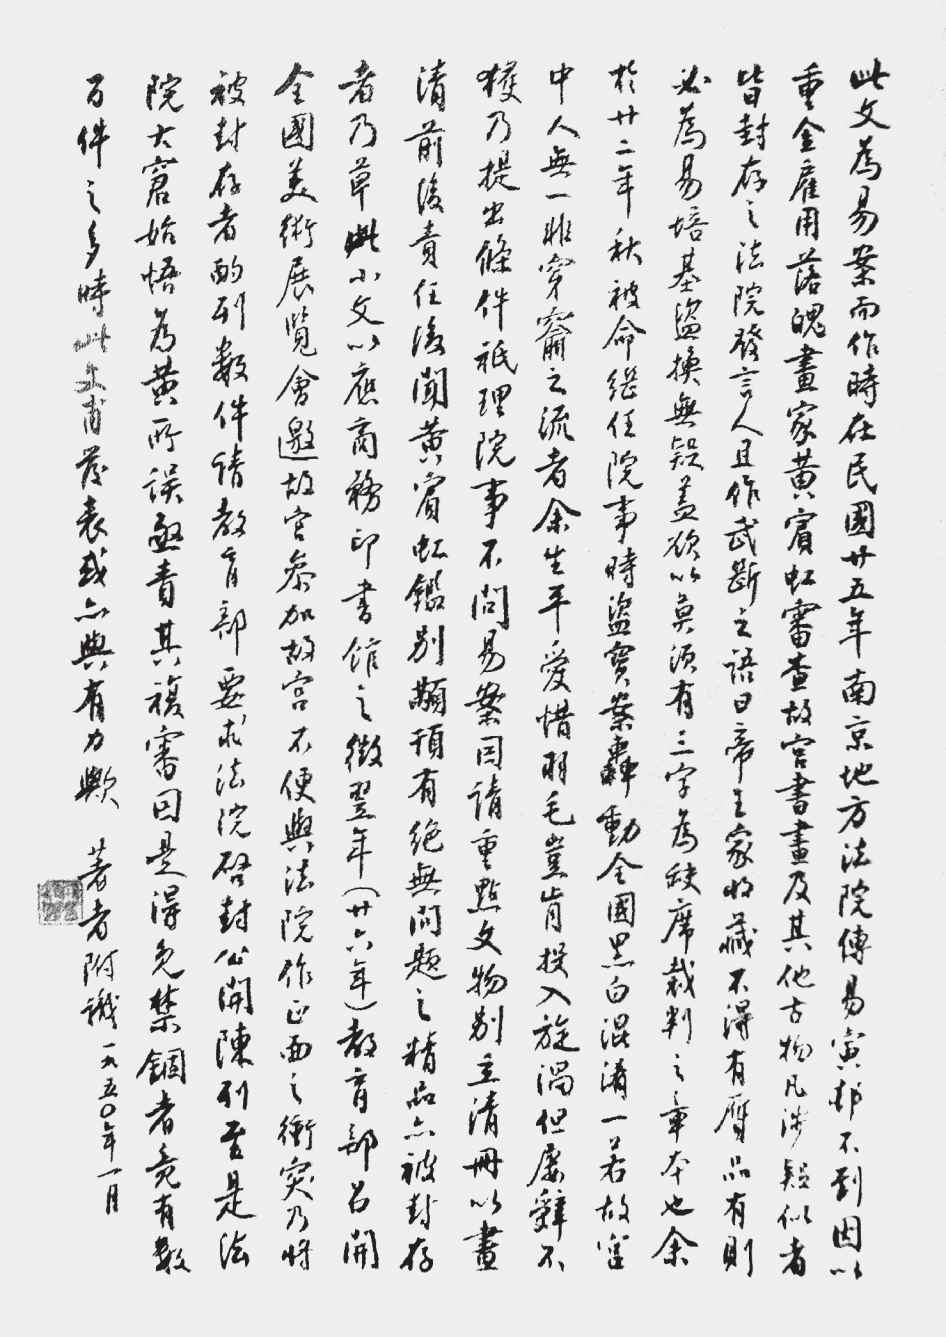 此文為易案而作時在民國廿五年南京地方法院傳易寅邨不到因以
重金雇用落魄畫家黃賓虹審查故宮書畫及其他古物凡涉疑似者
皆封存之法院發言人且作武斷之語曰帝王家收藏不得有贋品有則
必為易培基盜換無疑蓋欲以莫須有三字為缺席裁判之章本也余
於廿二年秋被命繼任院事時盜寶案轟動全國黑白混淆一若故宮
中人無一非穿窬之流者余生平愛惜羽毛豈肯投入旋渦但屢辭不
獲乃提出條件祇理院事不問易案因請重點文物別立清冊以畫
清前後責任後聞黃賓虹鑑別顢頇有絕無問題之精品亦被封存
者乃草此小文以應商務印書館之徵翌年(廿六年)教育部召開
全國美術展覽會邀故宮參加故宮不便與法院作正面之衝突乃將
被封存者酌列數件請教育部要求法院啓封公開陳列至是法
院大窘始悟為黃所誤亟責其複審因是得免禁錮者竟有數
百件之多時此文甫發表或亦與有力歟 著者附識 一九五〇年一月